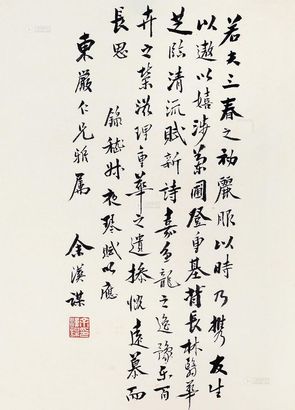 若夫三春之初麗服以時乃攜友生
以遨以嬉涉蘭圃登重基背長林翳華
芝臨清流賦新詩嘉魚龍之逸豫樂百
卉之榮滋理重華之遺操慨遠慕而
長思
錄嵇叔夜琴賦以應
東嚴仁兄雅屬
余漢謀